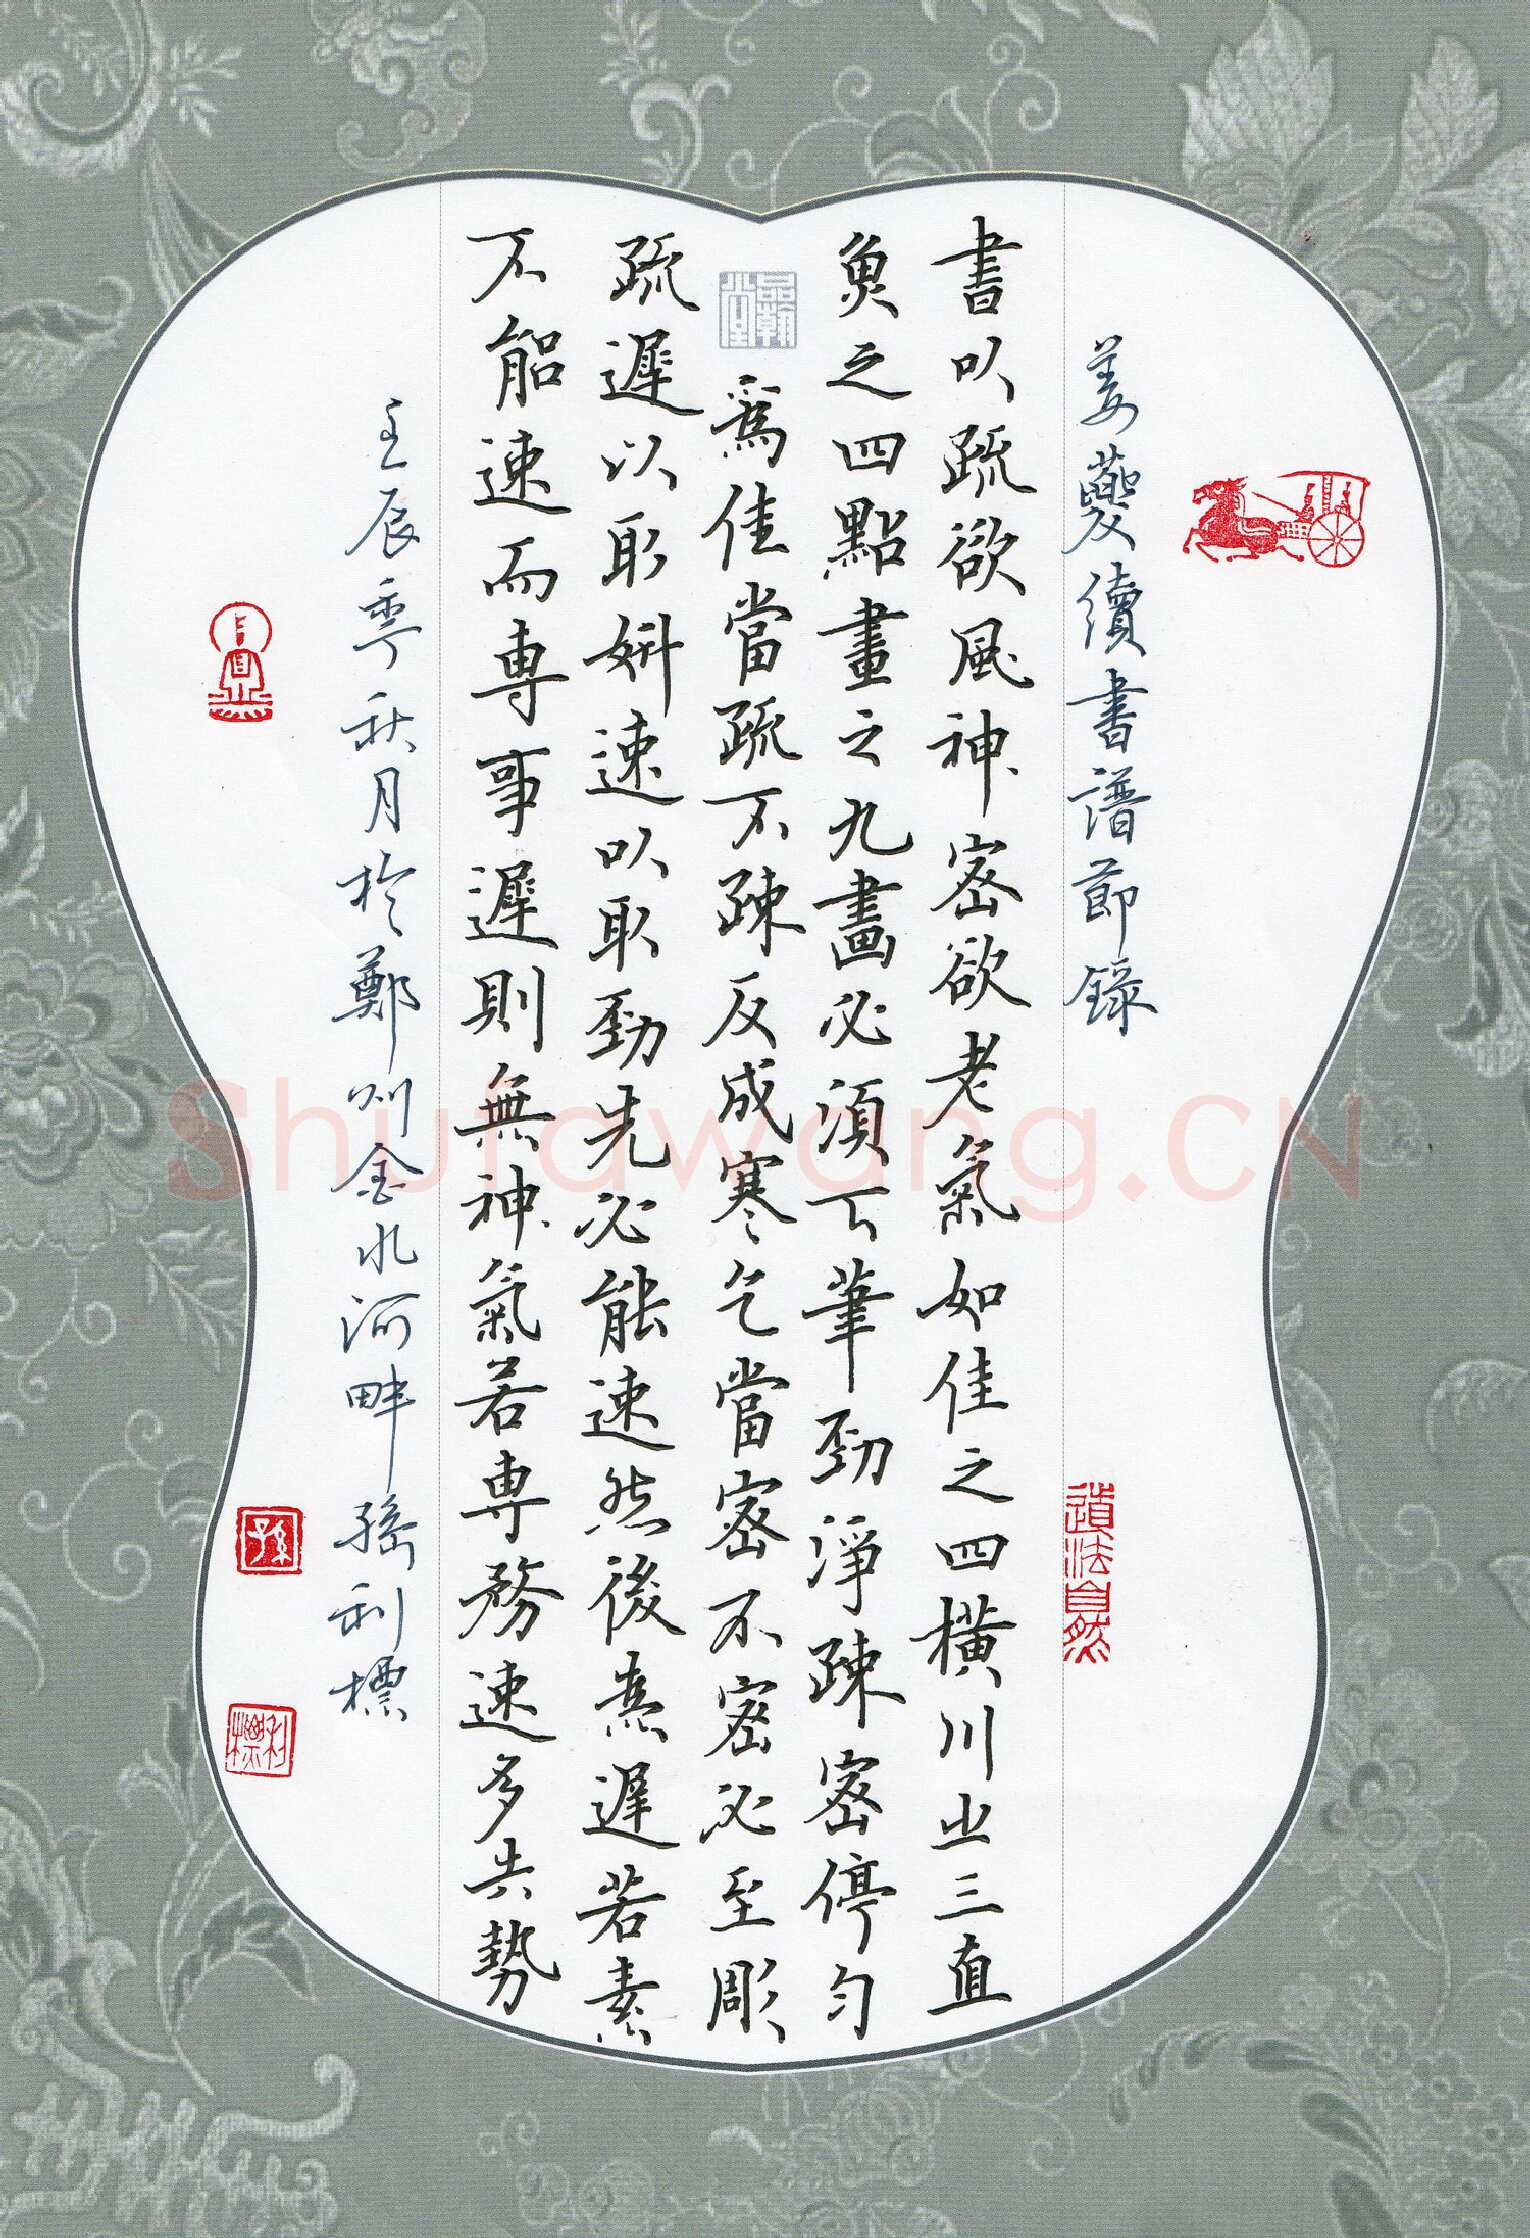 姜夔續書譜節錄
書以疏欲風神密欲老氣如佳之四橫川之三直
魚之四點畫之九畫必須下筆勁淨疎密停勻
為佳當疏不疎反成寒乞當密不密必至彫
疏遲以取妍速以取勁先必能速然後為遲若素
不能速而專事遲則無神氣若專務速多失勢
壬辰季秋月於鄭州金水河畔孫利標
道法自然
品翰堂
孫
利標
Shufawang.CN